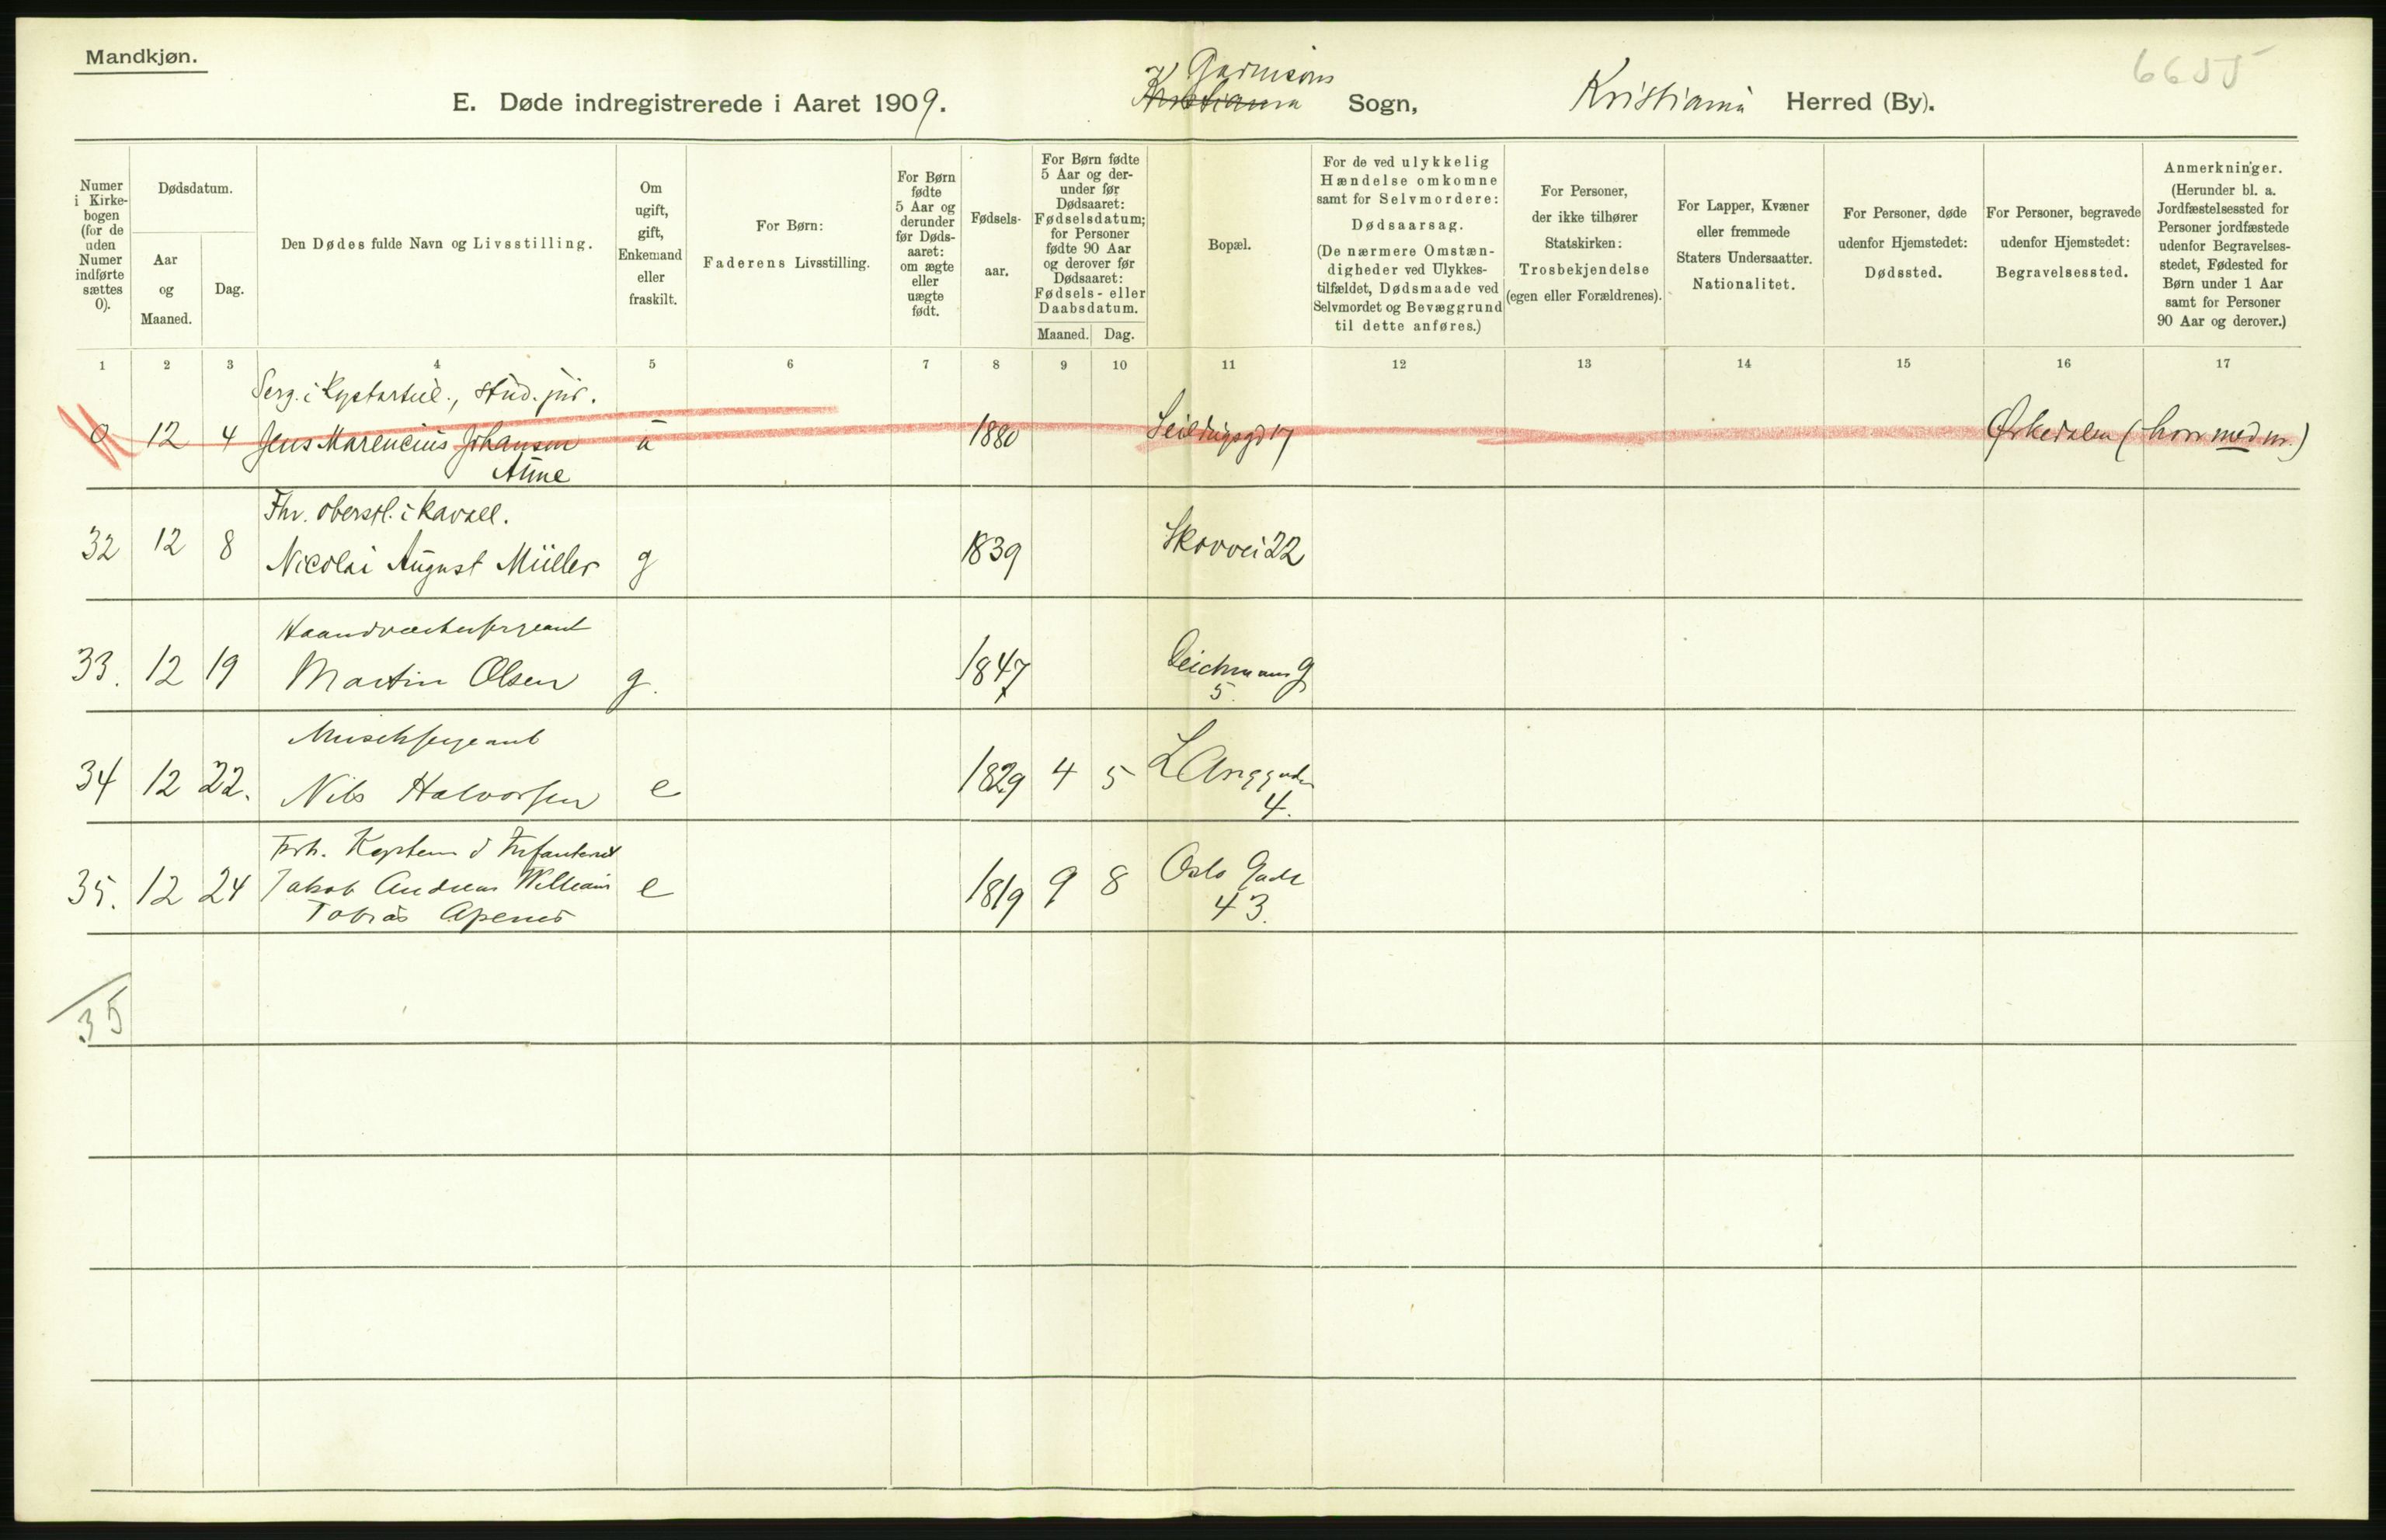 Mandkjøn.
6655
E. Døde indregistrerede i Aaret 1909. Kristiania Garnisons Sogn, Kristiania Herred (By).
Numer i Kirkebogen (for de uden Numer indførte sættes 0).
Dødsdatum.
Aar og Maaned.
Dag.
Den Dødes fulde Navn og Livsstilling.
Om ugift, gift, Enkemand eller fraskilt.
For Børn: Faderens Livsstilling.
For Børn fødte 5 Aar og derunder før Dødsaaret: om ægte eller uægte født.
Fødselsaar.
For Børn fødte 5 Aar og derunder før Dødsaaret: Fødselsdatum; for Personer fødte 90 Aar og derover før Dødsaaret: Fødsels- eller Daabsdatum.
Maaned. Dag.
Bopæl.
For de ved ulykkelig Hændelse omkomne samt for Selvmordere: Dødsaarsag. (De nærmere Omstændigheder ved Ulykkestilfældet, Dødsmaade ved Selvmordet og Bevæggrund til dette anføres.)
For Personer, der ikke tilhører Statskirken: Trosbekjendelse (egen eller Forældrenes).
For Lapper, Kvæner eller fremmede Staters Undersaatter. Nationalitet.
For Personer, døde udenfor Hjemstedet: Dødssted.
For Personer, begravede udenfor Hjemstedet: Begravelsessted.
Anmerkninger. (Herunder bl. a. Jordfæstelsessted for Personer jordfæstede udenfor Begravelsesstedet, Fødested for Børn under 1 Aar samt for Personer 90 Aar og derover.)
1 2 3 4 5 6 7 8 9 10 11 12 13 14 15 16 17
Serg. i Kystartil., stud. jur.
0 12 4 Jens Marencius Johansen u 1880 Seildugsgd 17 Ørkedalen (hvor med m.)
Aune
Fhv. oberstl. i kavall.
32 12 8 Nicolai August Müller g 1839 Skovvei 22
Haandverkersergeant
33. 12 19 Martin Olsen g. 1847 Deichmans g
5.
Musiksergeant
34 12 22. Nils Halvorsen e 1829 4 5 Langgaden
4.
Forh. Kaptein i Infanteriet
35. 12 24 Jakob Andreas William e 1819 9 8 Oslo Gade
Tobias Apenes 43.
35